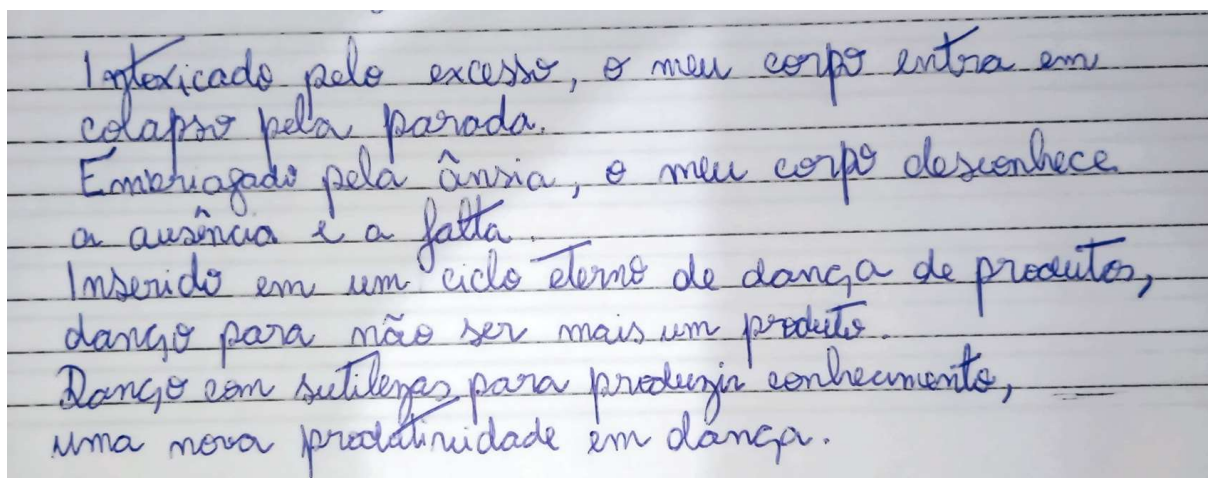 Intoxicado pelo excesso, o meu corpo entra em
colapso pela parada.
Embriagado pela ânsia, o meu corpo desconhece
a ausência e a falta.
Inserido em um ciclo eterno de dança de produtos,
danço para não ser mais um produto.
Danço com sutilezas para produzir conhecimento,
uma nova produtividade em dança.